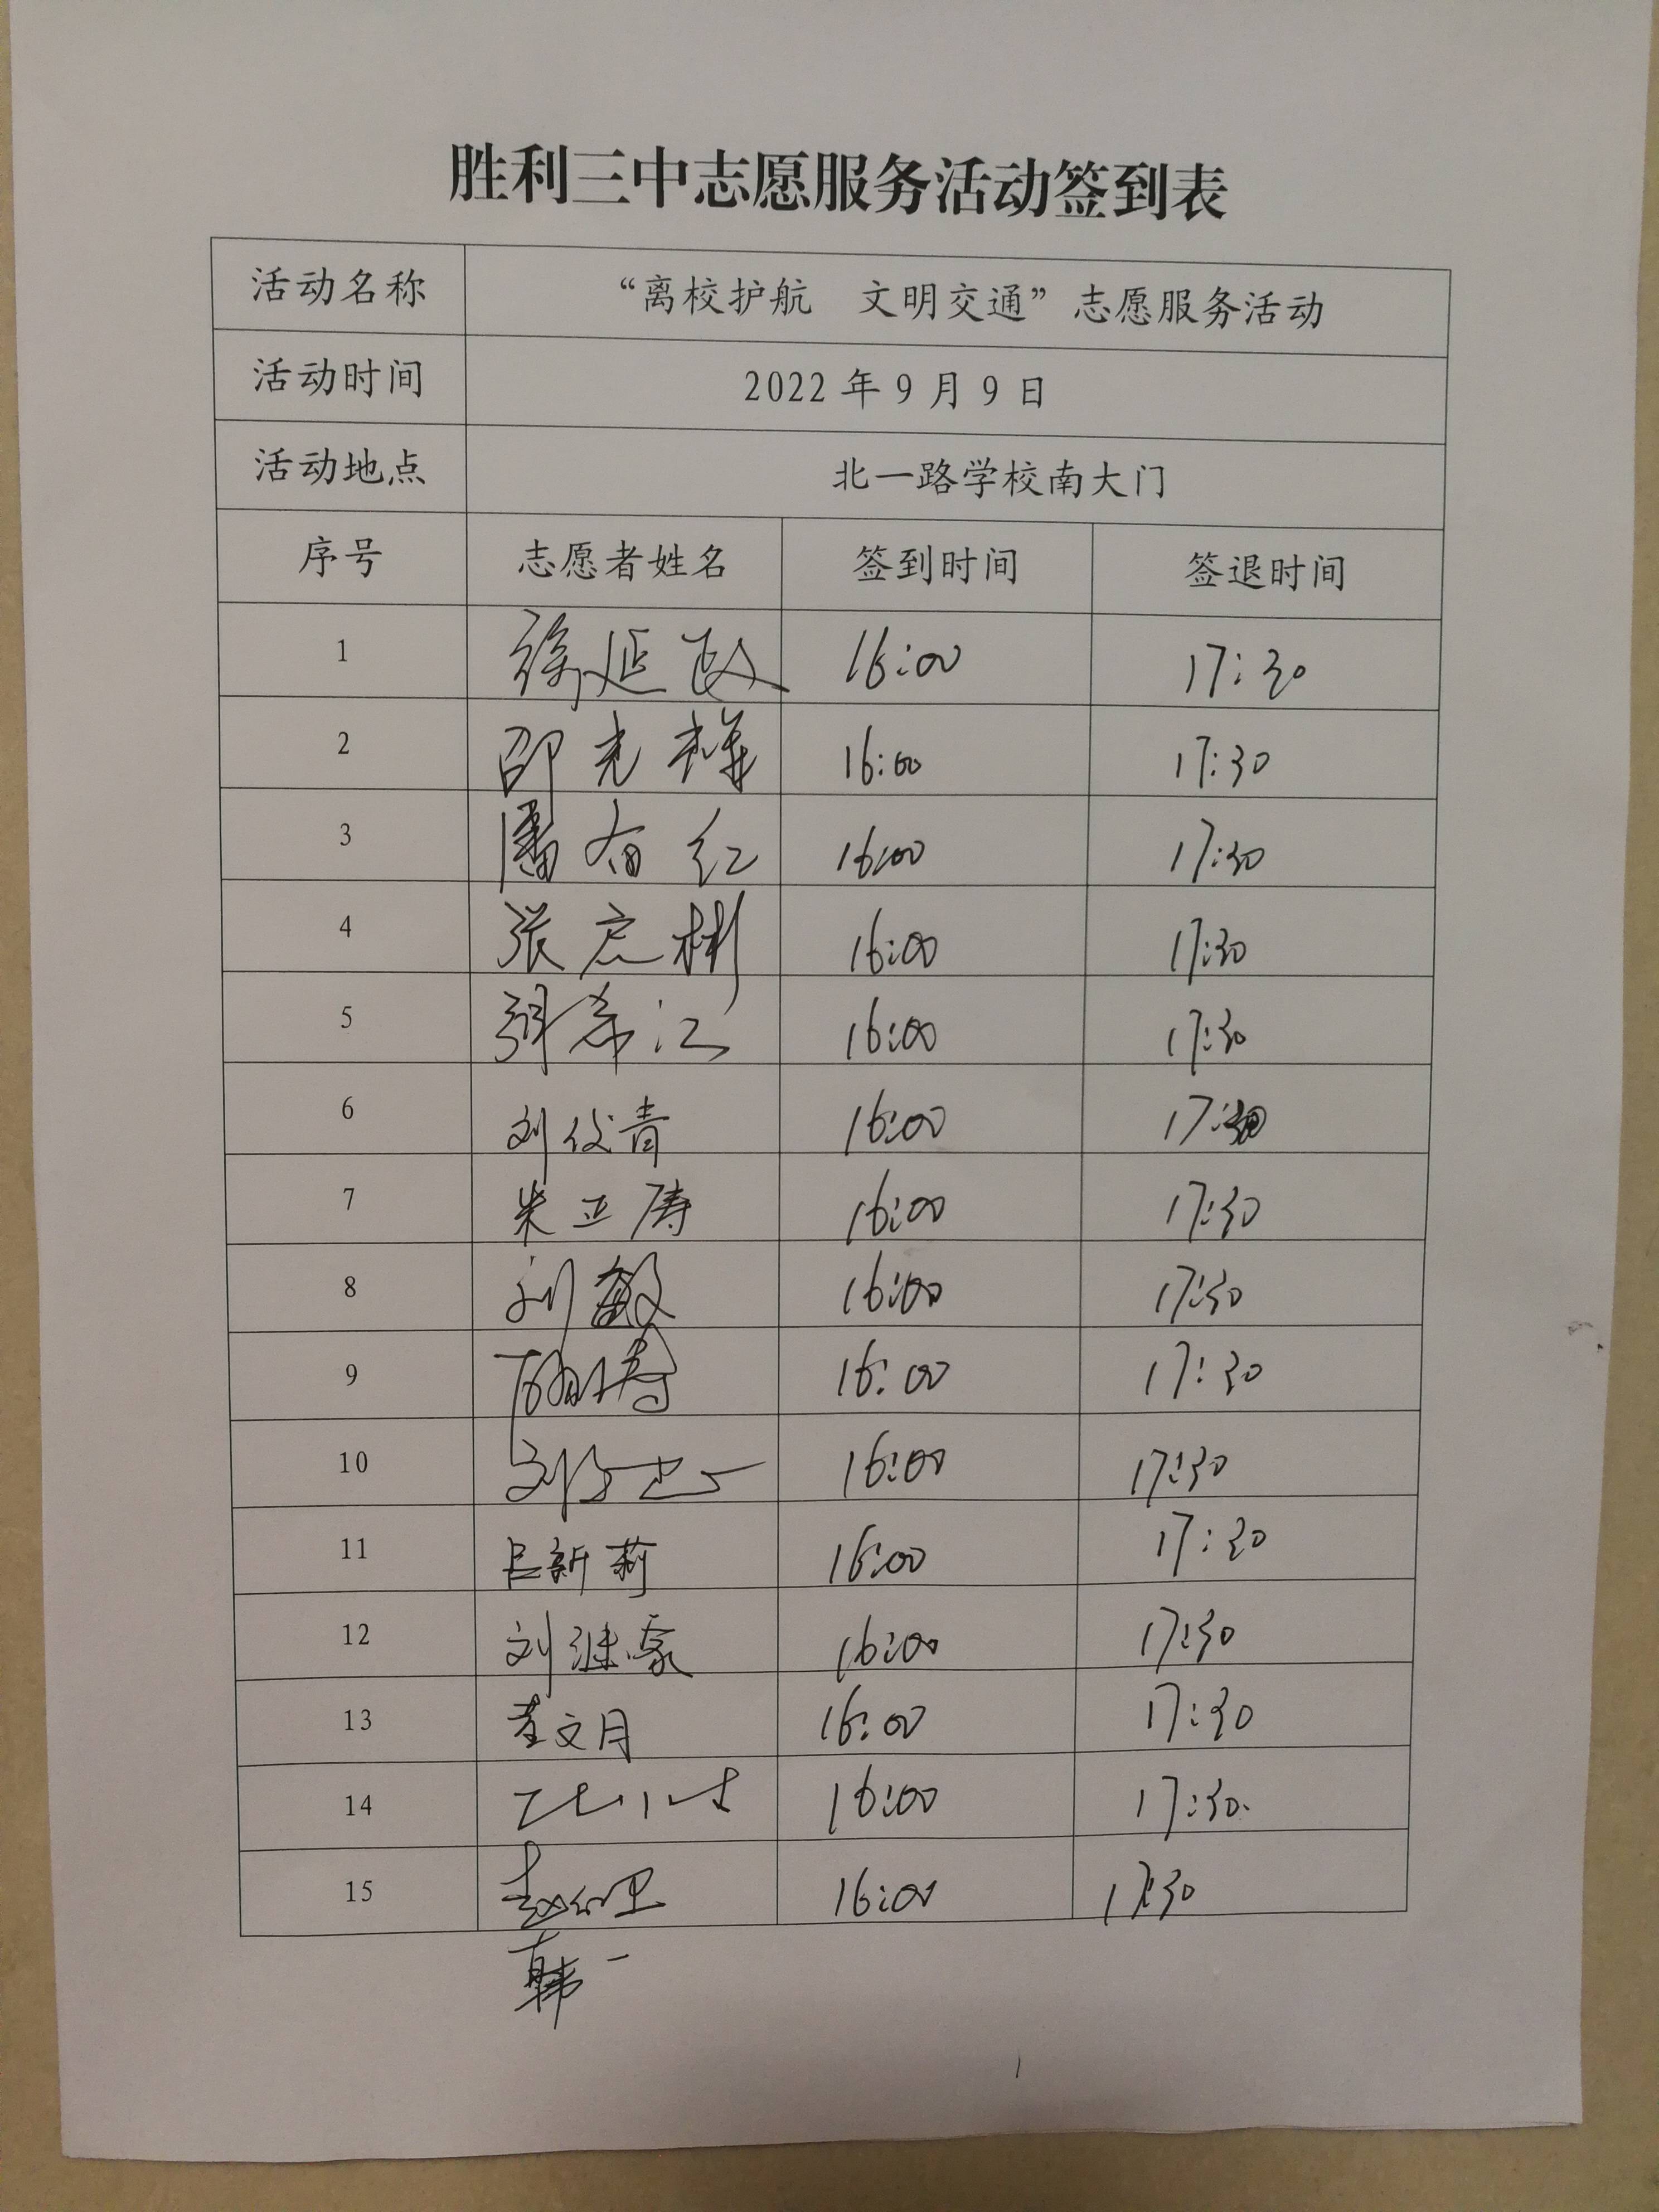 胜利三中志愿服务活动签到表
活动名称 “离校护航 文明交通”志愿服务活动
活动时间 2022年9月9日
活动地点 北一路学校南大门
序号 志愿者姓名 签到时间 签退时间
1 徐延政 16:00 17:30
2 邵光辉 16:00 17:30
3 潘有红 16:00 17:30
4 张彦彬 16:00 17:30
5 张希江 16:00 17:30
6 刘俊青 16:00 17:30
7 朱亚涛 16:00 17:30
8 刘敏 16:00 17:30
9 16:00 17:30
10 刘 16:00 17:30
11 吕新莉 16:00 17:30
12 刘继豪 16:00 17:30
13 李文月 16:00 17:30
14 16:00 17:30
15 赵红卫 16:00 17:30
韩一